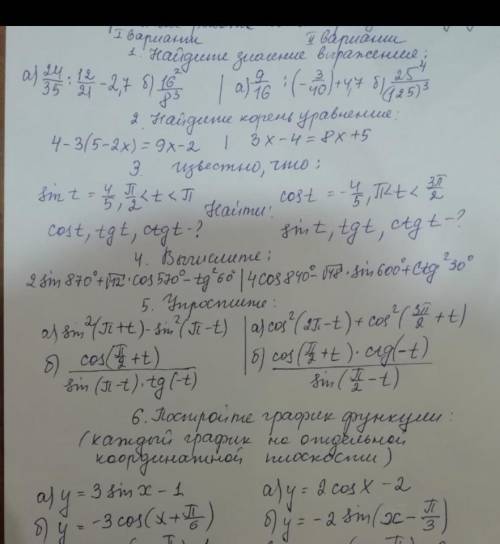 I варианти II варианти
1. Найдите значение выражение:
а) 24/35 : 12/21 - 2,7 б) 16²/8³ | а) 9/16 : (-3/40) + 4,7 б) 25⁴/(125)³
2. Найдите корень уравнение:
4-3(5-2x) = 9x-2 | 3x-4 = 8x+5
3. известно, что:
sin t = 4/5, π/2 < t < π cos t = -4/5, π < t < 3π/2
Найти:
cost, tgt, ctgt-? sint, tgt, ctgt-?
4. Вычислите:
2 sin 870° + √12 · cos 570° - tg² 60° | 4 cos 840° - √48 · sin 600° + ctg² 30°
5. Упростите:
а) sin²(π+t) - sin²(π-t) | а) cos²(2π-t) + cos²(3π/2 + t)
б) cos(π/2 + t) / sin(π-t)·tg(-t) | б) cos(π/2 + t) · ctg(-t) / sin(π/2 - t)
6. Постройте график функции:
(каждый график на отдельной
координатной плоскости)
а) y = 3 sin x - 1 а) y = 2 cos x - 2
б) y = -3 cos(x + π/6) б) y = -2 sin(x - π/3)